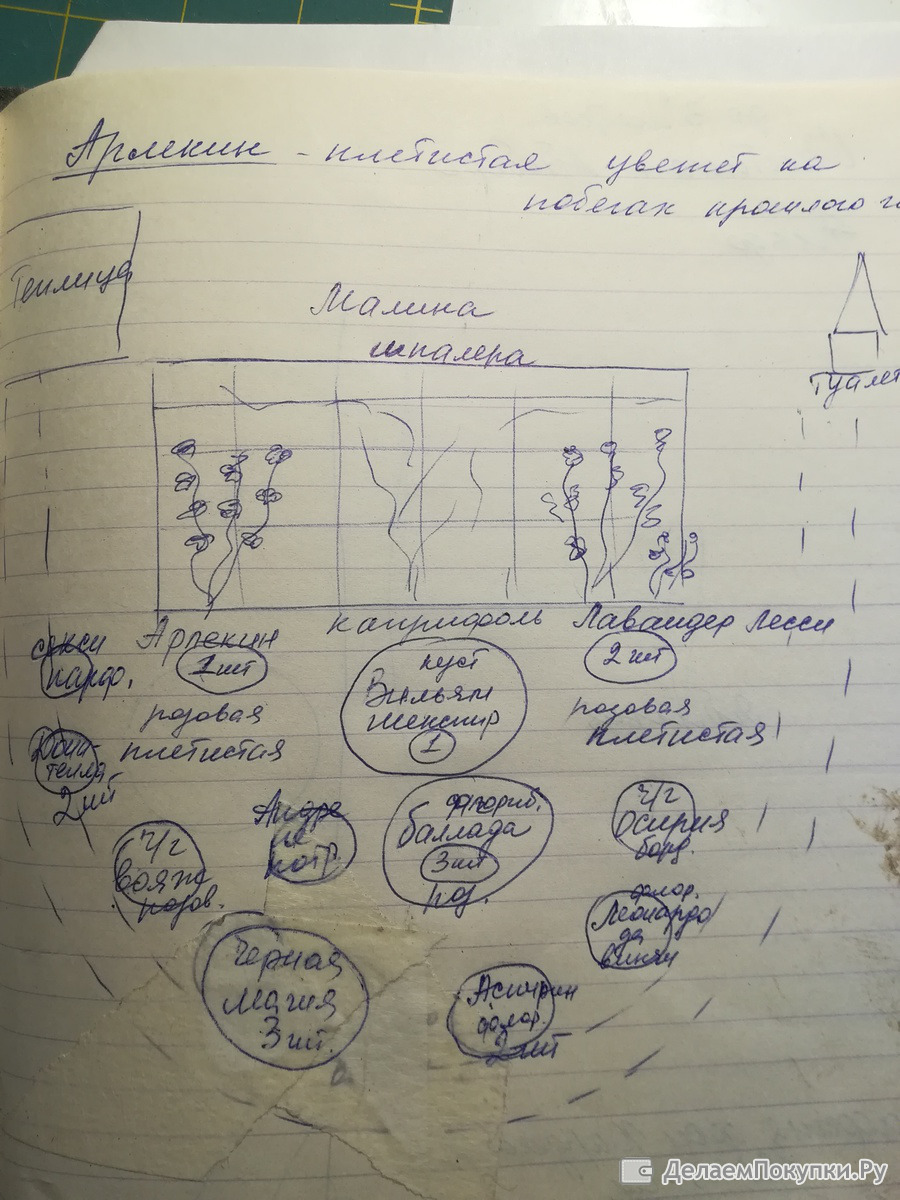 Арлекин - плетистая цветет на
побегах прошлого г
Теплица
Малина
шпалера
Туалет
Арлекин
1 шт
розовая
плетистая
каприфоль
куст
Вильям
шекспир
1
Лавандер Лесси
2 шт
розовая
плетистая
секси
2 шт
ч/г
вояж
розов.
флориб.
баллада
3 шт
роз.
ч/г
Осирия
борд.
флор.
Леонардо
да
винчи
Черная
магия
3 шт.
Аспирин
флор.
2 шт
ДелаемПокупки.Ру